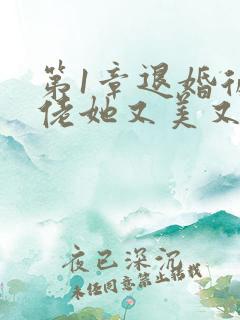 第1章退婚
佬她又美又
夜已深沉
未经同意禁止转载